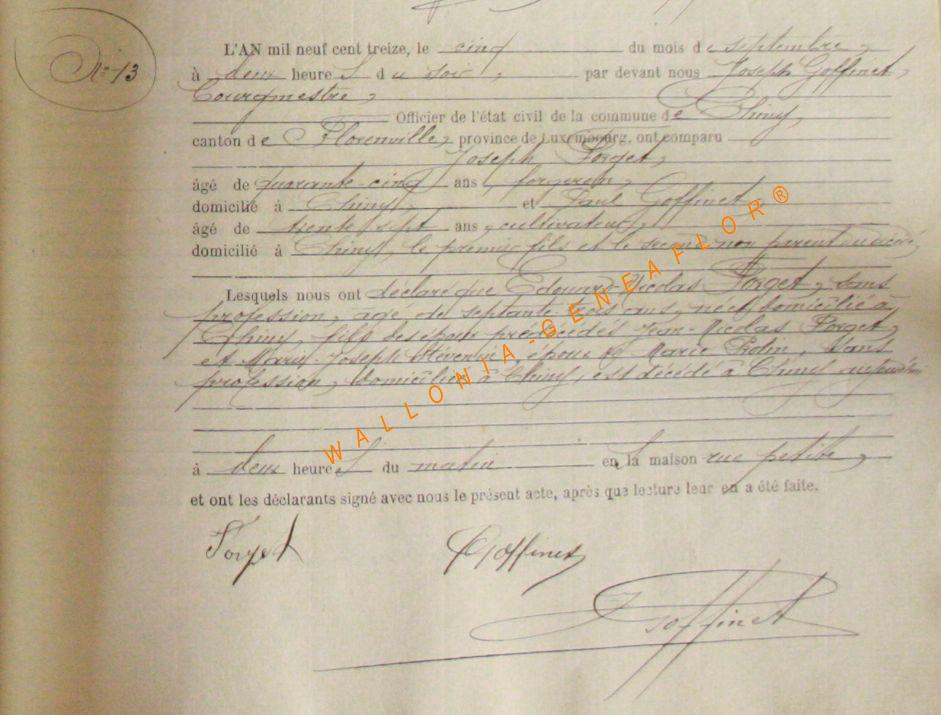 N° 13
L'AN mil neuf cent treize, le cinq du mois de septembre,
à deux heures du soir, par devant nous Joseph Goffinet,
Bourgmestre,
Officier de l'état civil de la commune de Chiny,
canton de Florenville, province de Luxembourg, ont comparu
Joseph Forget,
âgé de quarante-cinq ans, forgeron,
domicilié à Chiny, et Paul Goffinet
âgé de trente sept ans, cultivateur,
domicilié à Chiny, le premier fils et le second non parent du décédé,
Lesquels nous ont déclaré que Edouard-Nicolas Forget, sans
profession, âgé de septante trois ans, né et domicilié à
Chiny, fils des époux prédécédés Jean-Nicolas Forget,
et Marie-Joseph époux de Marie sans
profession, domiciliée à Chiny, est décédé à Chiny aujourd'hui
à deux heures du matin en la maison rue petite,
et ont les déclarants signé avec nous le présent acte, après que lecture leur en a été faite.
Forget Goffinet
J Goffinet
WALLONIA-GENEAFLOR®